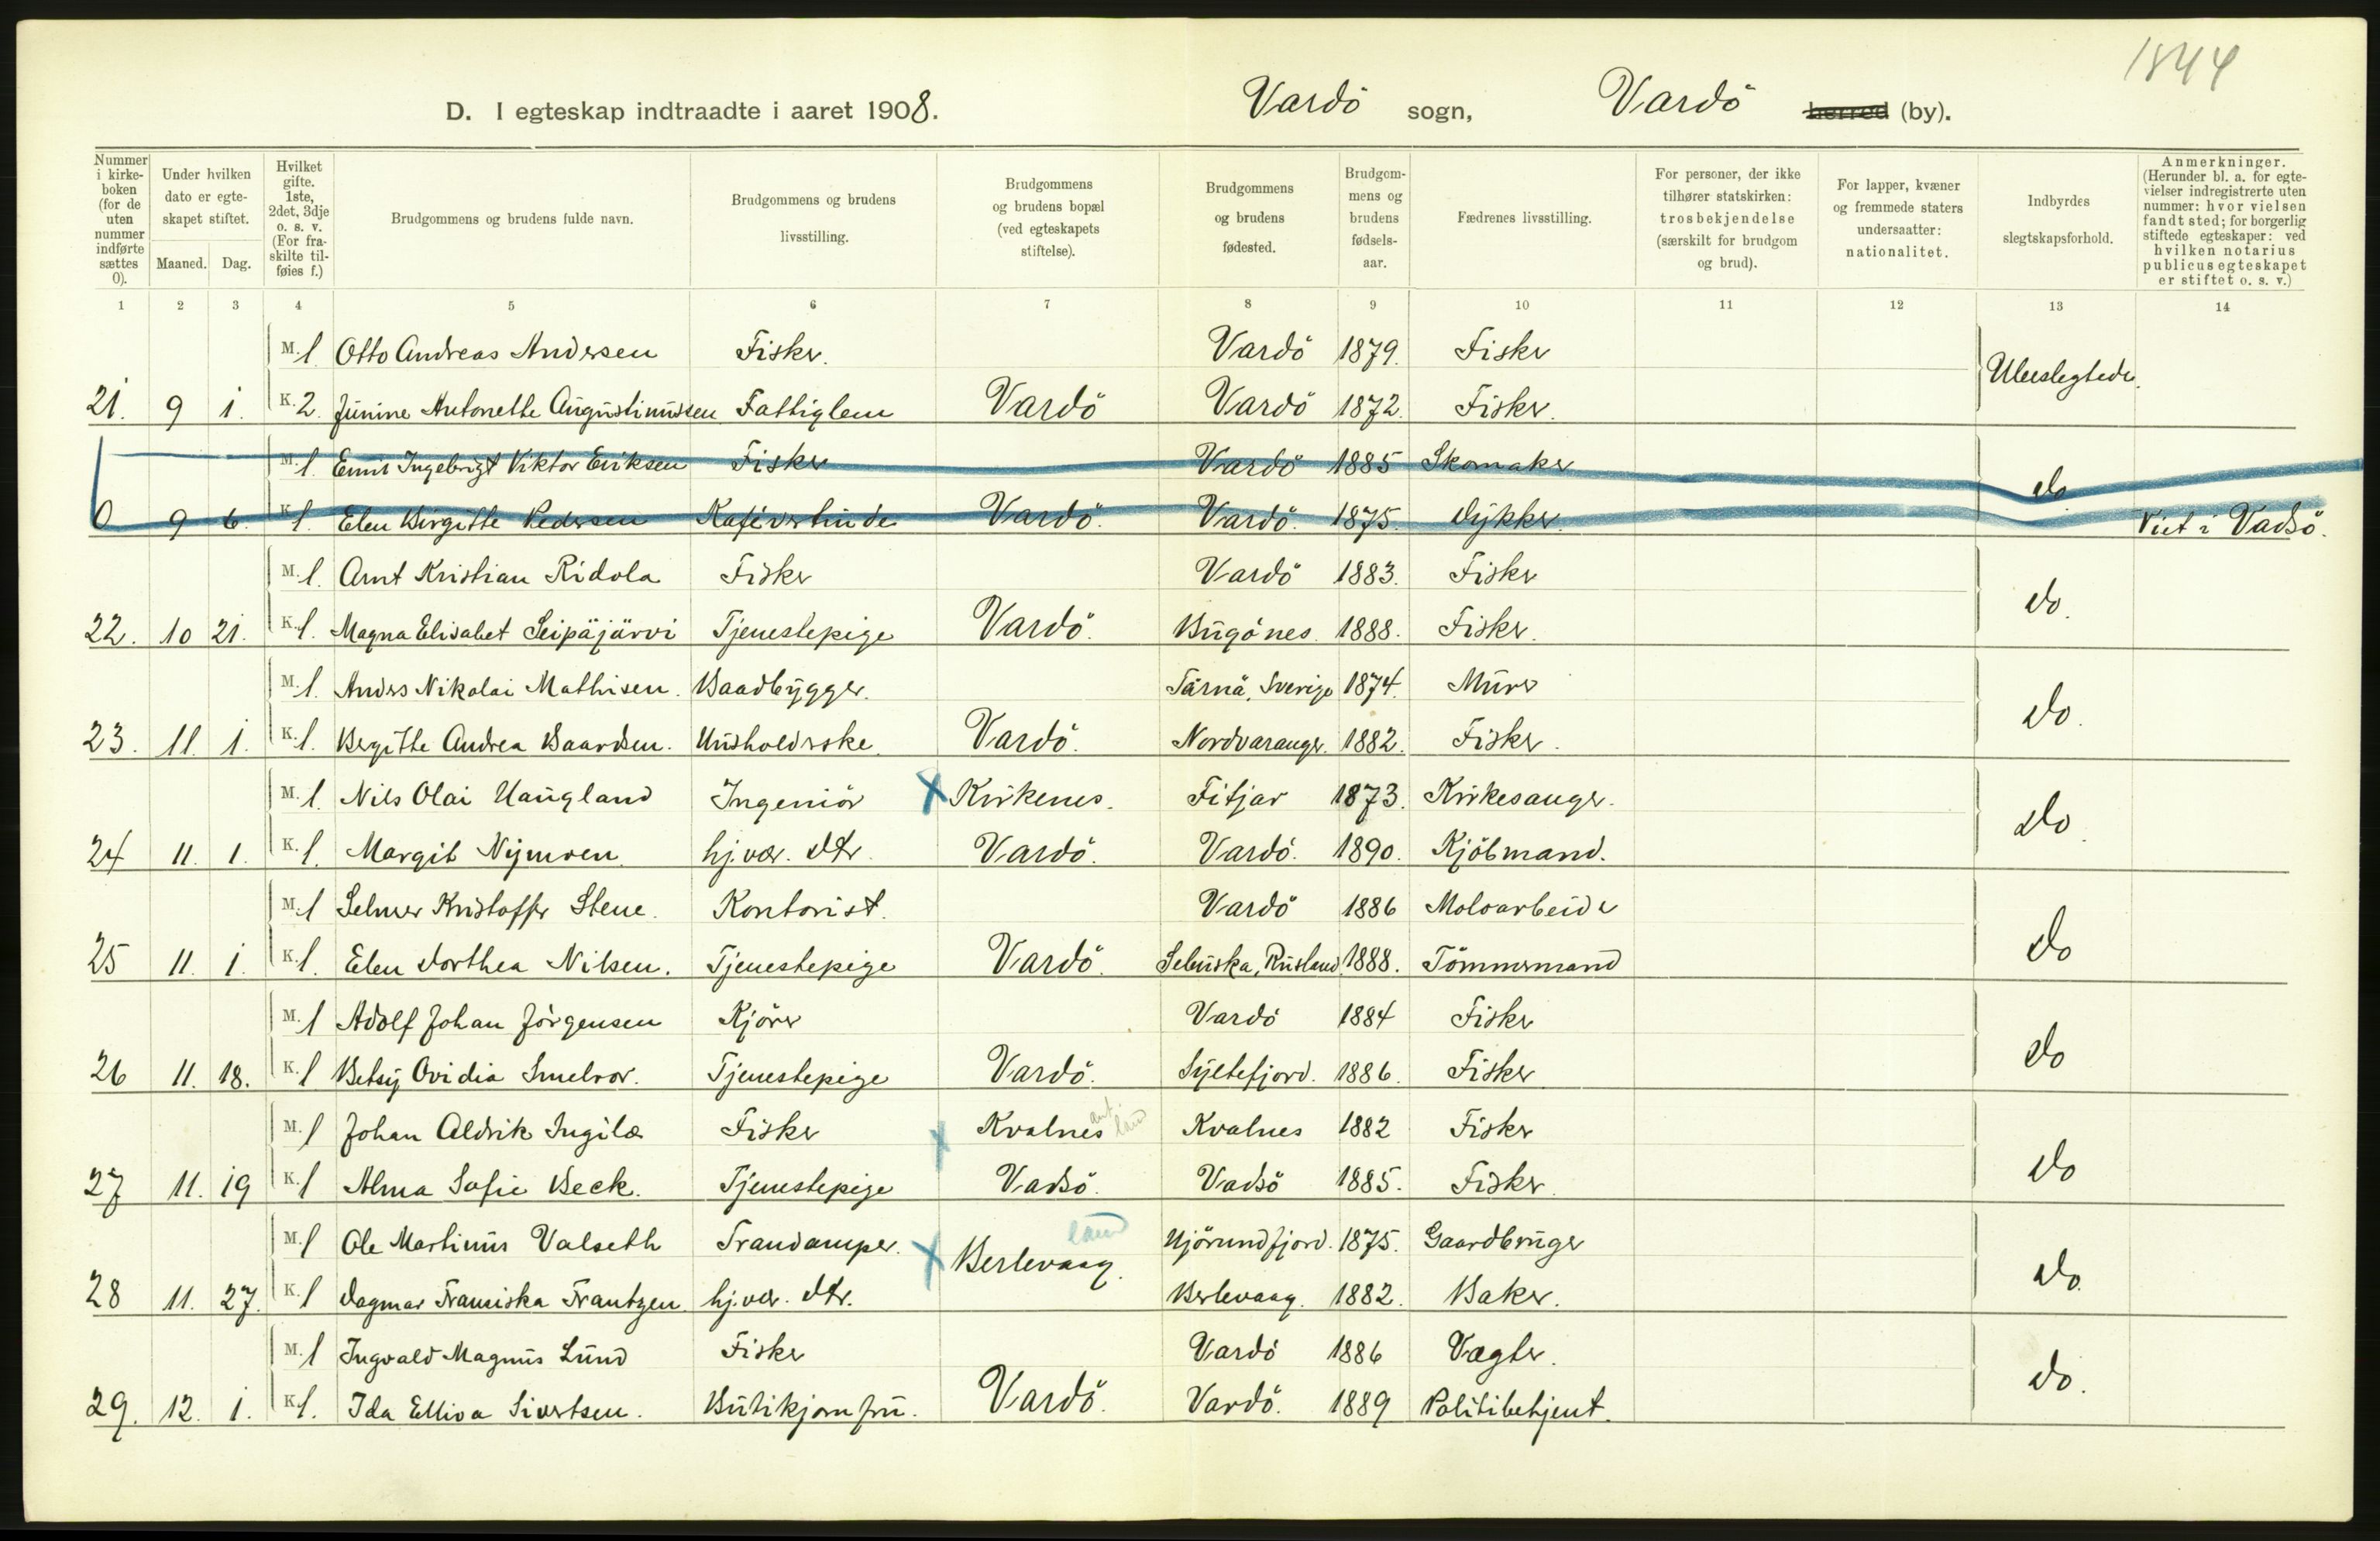 1844
D. I egteskap indtraadte i aaret 1908. Vardö sogn, Vardö herred (by).
Nummer i kirkeboken (for de uten nummer indførte sættes 0). | Under hvilken dato er egteskapet stiftet. Maaned. Dag. | Hvilket gifte. 1ste, 2det, 3dje o. s. v. (For fraskilte tilføies f.) | Brudgommens og brudens fulde navn. | Brudgommens og brudens livsstilling. | Brudgommens og brudens bopæl (ved egteskapets stiftelse). | Brudgommens og brudens fødested. | Brudgommens og brudens fødselsaar. | Fædrenes livsstilling. | For personer, der ikke tilhører statskirken: trosbekjendelse (særskilt for brudgom og brud). | For lapper, kvæner og fremmede staters undersaatter: nationalitet. | Indbyrdes slegtskapsforhold. | Anmerkninger. (Herunder bl. a. for egtevielser indregistrerte uten nummer: hvor vielsen fandt sted; for borgerlig stiftede egteskaper: ved hvilken notarius publicus egteskapet er stiftet o. s. v.)
1 2 3 4 5 6 7 8 9 10 11 12 13 14
M. 1 Otto Andreas Andersen Fisker. Vardö 1879. Fisker Ubeslegtede.
21. 9 1. K. 2. Junine Antonette Augustinussen Fattiglem Vardö Vardö 1872. Fisker.
M. 1. Emil Ingebrigt Viktor Eriksen Fisker Vardö 1885 Skomaker do
0 9 6. K. 1. Elen Birgitte Pedersen Kafévertinde Vardö. Vardö. 1875. Dykker. Viet i Vadsö.
M. 1. Arnt Kristian Ridola Fisker Vardö 1883. Fisker do.
22. 10 21. K. 1. Magna Elisabet Seipäjärvi Tjenestepige Vardö. Bugönes. 1888. Fisker.
M. 1. Anders Nikolai Mathisen. Baadbygger. Tärnä, Sverige 1874. Murer do.
23. 11. 1. K. 1. Bergitte Andrea Baardsen. Husholderske. Vardö. Nordvaranger. 1882. Fisker.
M. 1. Nils Olai Haugland Ingeniör X Kirkenes. Fitjar 1873. Kirkesanger. do.
24 11. 1. K. 1. Margit Nymoen hj.vær. dtr. Vardö. Vardö. 1890. Kjöbmand.
M. 1 Selmer Kristoffer Stene. Kontorist. Vardö 1886 Moloarbeider do
25 11. 1. K. 1. Elen Dorthea Nilsen. Tjenestepige Vardö. Rusland 1888. Tömmermand
M. 1 Adolf Johan Jörgensen Kjörer Vardö 1884 Fisker do
26 11. 18. K. 1 Betsy Ovidia Smelror. Tjenestepige Vardö. Syltefjord. 1886. Fisker
M. 1 Johan Aldrik Ingilæ Fisker X Kvalnes land Kvalnes 1882 Fisker do
27 11. 19 K. 1 Alma Sofie Beck. Tjenestepige Vadsö. Vadsö 1885. Fisker.
M. 1 Ole Martinus Valseth Trandamper. X Berlevaag. land Hjörundfjord. 1875. Gaardbruger do.
28 11. 27. K. 1 Dagmar Franciska Frantzen hj.vær. dtr. Berlevaag. 1882. Baker.
M. 1 Ingvald Magnus Lund Fisker Vardö 1886 Vægter. do.
29. 12. 1. K. 1. Ida Elliva Sivertsen. Butikjomfru. Vardö. Vardö. 1889 Politibetjent.